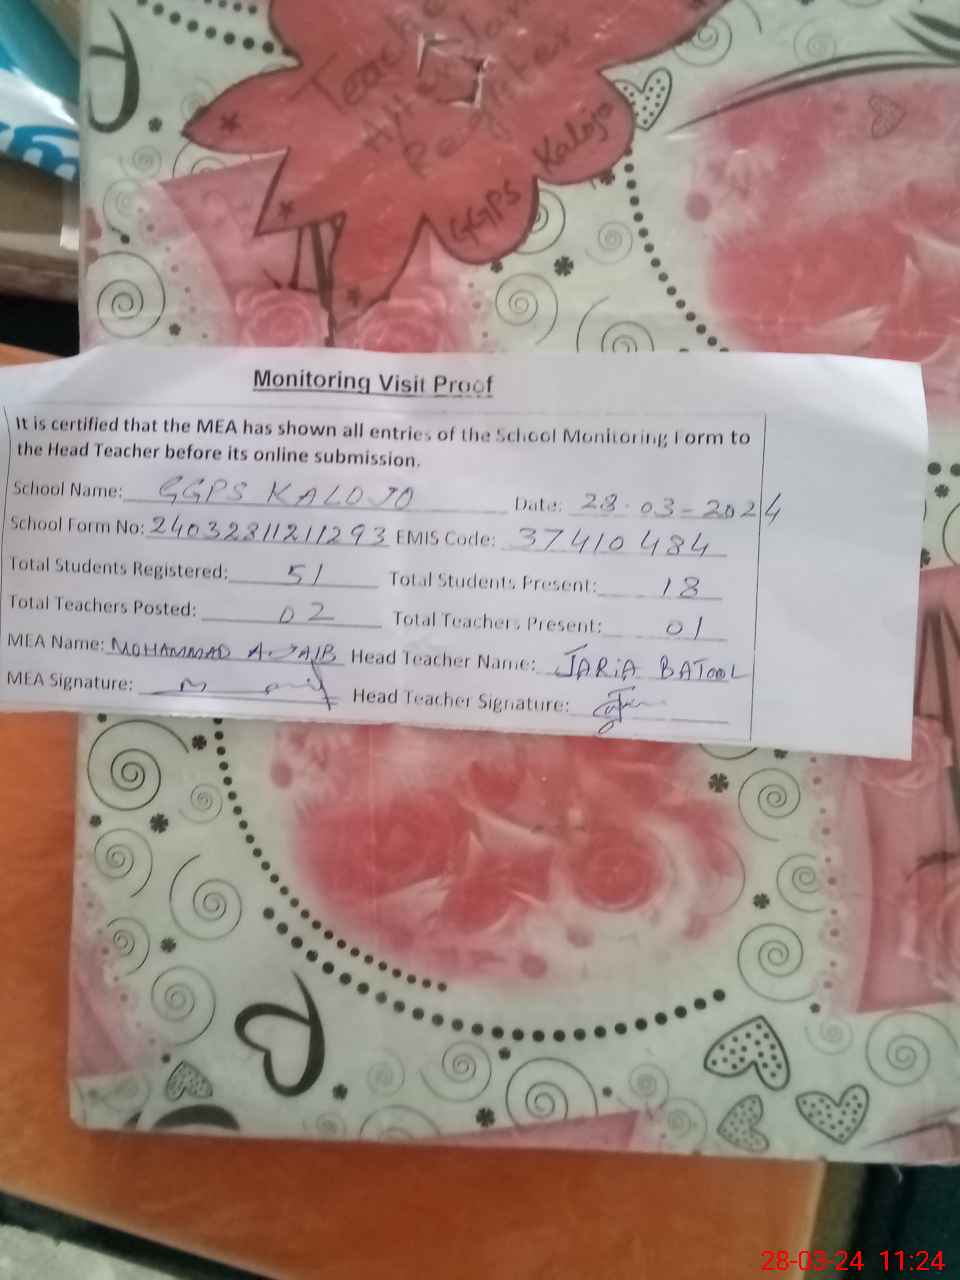 Teacher
Register
GGPS Kalojo
Monitoring Visit Proof
It is certified that the MEA has shown all entries of the School Monitoring Form to
the Head Teacher before its online submission.
School Name: GGPS KALOJO Date: 28-03-2024
School Form No: 24032811211293 EMIS Code: 37410484
Total Students Registered: 51 Total Students Present: 18
Total Teachers Posted: 02 Total Teachers Present: 01
MEA Name: MOHAMMAD AJAIB Head Teacher Name: JARIA BATOOL
MEA Signature: Head Teacher Signature:
28-03-24 11:24